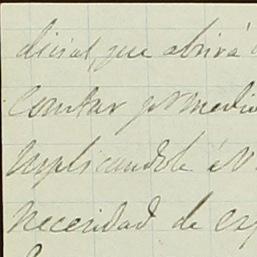 dicial que abrirá
contar por medio
suplicandole á V
necesidad de es